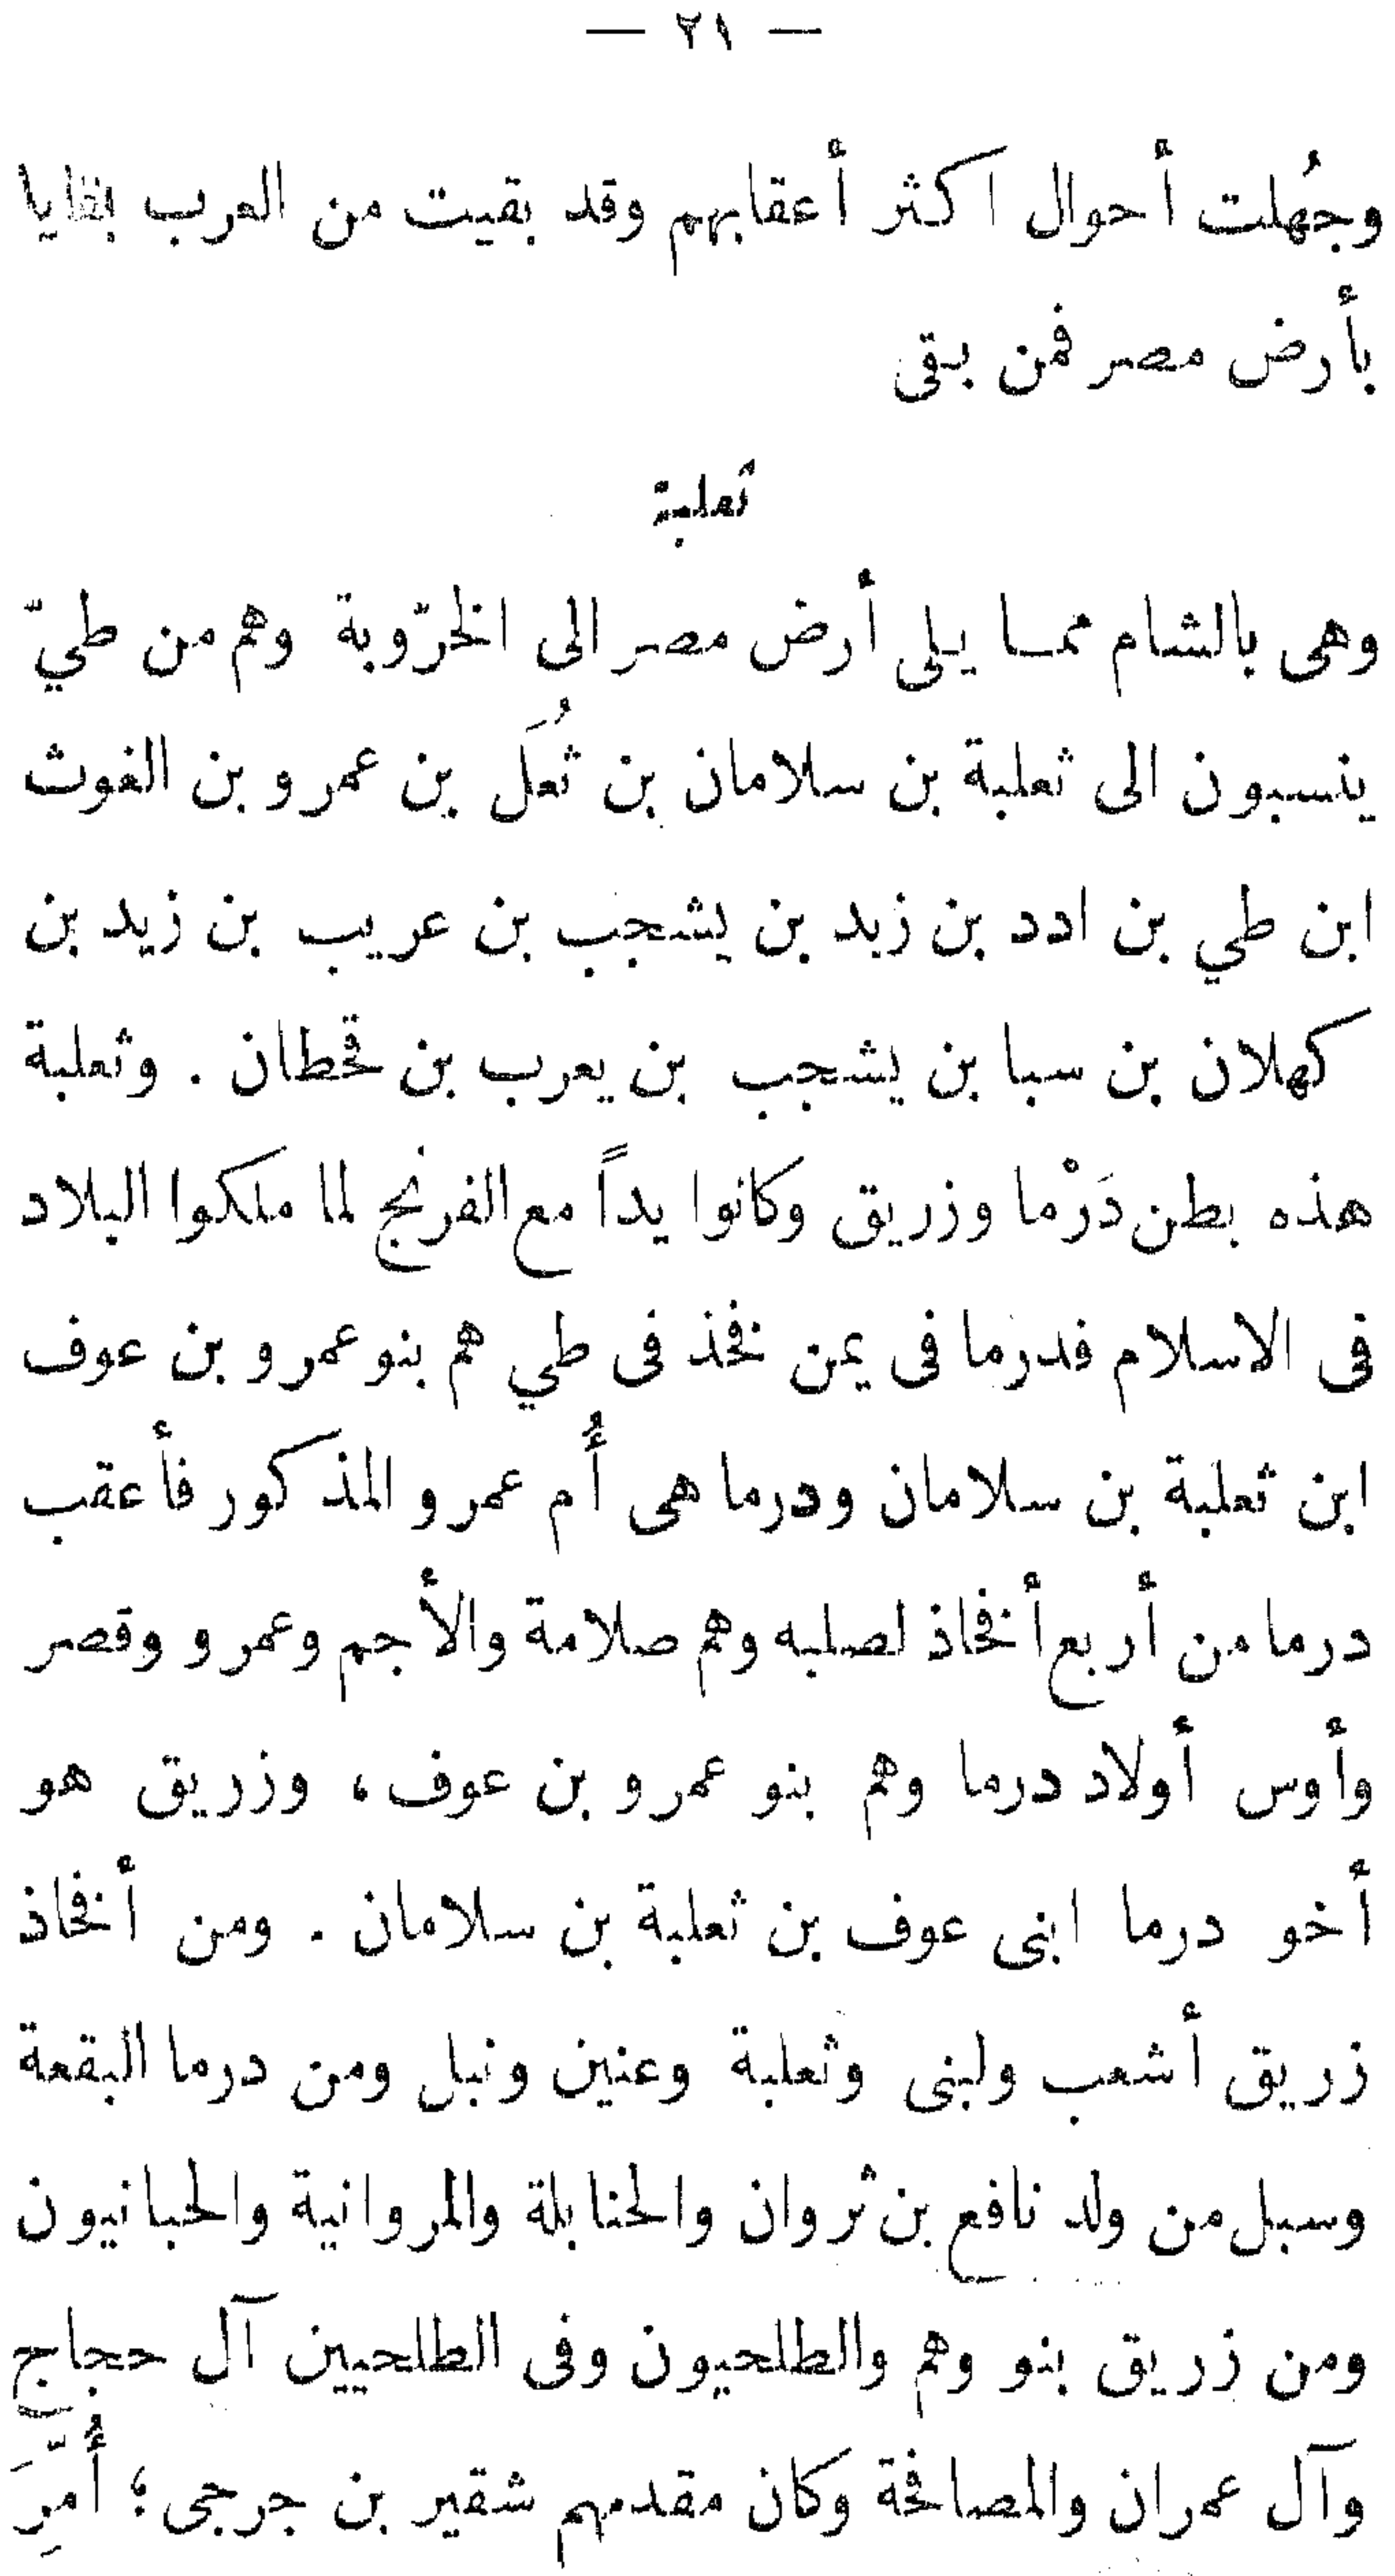 — ٢١ —
وجُهلت أحوال اكثر أعقابهم وقد بقيت من العرب بقايا
بأرض مصر فمن بقى
ثعلبة
وهى بالشام مما يلى أرض مصر الى الخرّوبة وهم من طيّ
ينسبون الى ثعلبة بن سلامان بن ثُعَل بن عمرو بن الغوث
ابن طي بن ادد بن زيد بن يشجب بن عريب بن زيد بن
كهلان بن سبا بن يشجب بن يعرب بن قحطان . وثعلبة
هذه بطن دَرْما وزريق وكانوا يداً مع الفرنج لما ملكوا البلاد
فى الاسلام فدرما فى يمن نخذ فى طي هم بنو عمرو بن عوف
ابن ثعلبة بن سلامان ودرما هى أُم عمرو المذكور فأعقب
درما من أربع أنخاذ لصلبه وهم صلامة والأجم وعمرو وقصر
وأوس أولاد درما وهم بنو عمرو بن عوف ، وزريق هو
أخو درما ابنى عوف بن ثعلبة بن سلامان . ومن أنخاذ
زريق أشعب ولبنى وثعلبة وعنين ونبل ومن درما البقعة
وسبل من ولد نافع بن ثروان والحنابلة والمروانية والحبانيون
ومن زريق بنو وهم والطلحيون وفى الطلحيين آل حجاج
وآل عمران والمصافحة وكان مقدمهم شقير بن جرجى ؛ أُمِّرَ